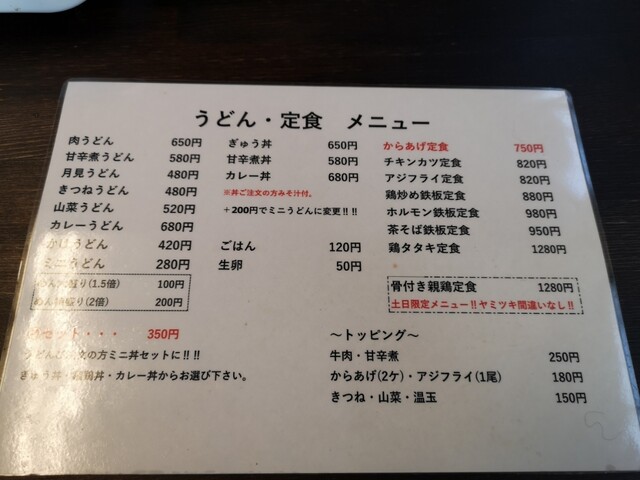 うどん・定食 メニュー
肉うどん 650円
甘辛煮うどん 580円
月見うどん 480円
きつねうどん 480円
山菜うどん 520円
カレーうどん 680円
かけうどん 420円
ミニうどん 280円
盛り(1.5倍) 100円
めん 盛り(2倍) 200円
セット・・・ 350円
うどんご注文の方ミニ丼セットに!!
ぎゅう丼・ 鶏丼・カレー丼からお選び下さい。
ぎゅう丼 650円
甘辛煮丼 580円
カレー丼 680円
※丼ご注文の方みそ汁付。
+200円でミニうどんに変更!!
ごはん 120円
生卵 50円
からあげ定食 750円
チキンカツ定食 820円
アジフライ定食 820円
鶏炒め鉄板定食 880円
ホルモン鉄板定食 980円
茶そば鉄板定食 950円
鶏タタキ定食 1280円
骨付き親鶏定食 1280円
土日限定メニュー!!ヤミツキ間違いなし!!
～トッピング～
牛肉・甘辛煮 250円
からあげ(2ケ)・アジフライ(1尾) 180円
きつね・山菜・温玉 150円